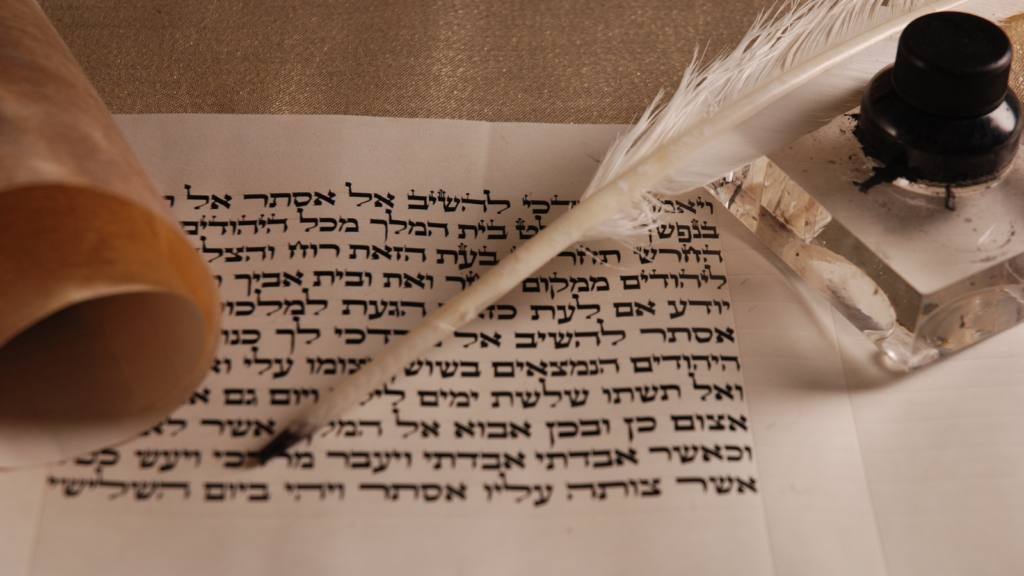 ויאמר להשיב אל אסתר אל
בנפשך בית המלך מכל היהודים
החרש בעת הזאת רוח והצל
ליהודים ממקום ואת ובית אביך
יודע אם לעת הגעת למלכות
אסתר להשיב אל לך כנוס
היהודים הנמצאים בשושן וצומו עלי
ואל תשתו שלשת ימים לילה ויום גם
אצום כן ובכן אבוא אל המלך אשר לא
וכאשר אבדתי אבדתי ויעבר מרדכי ויעש ככל
אשר צותה עליו אסתר ויהי ביום השלישי